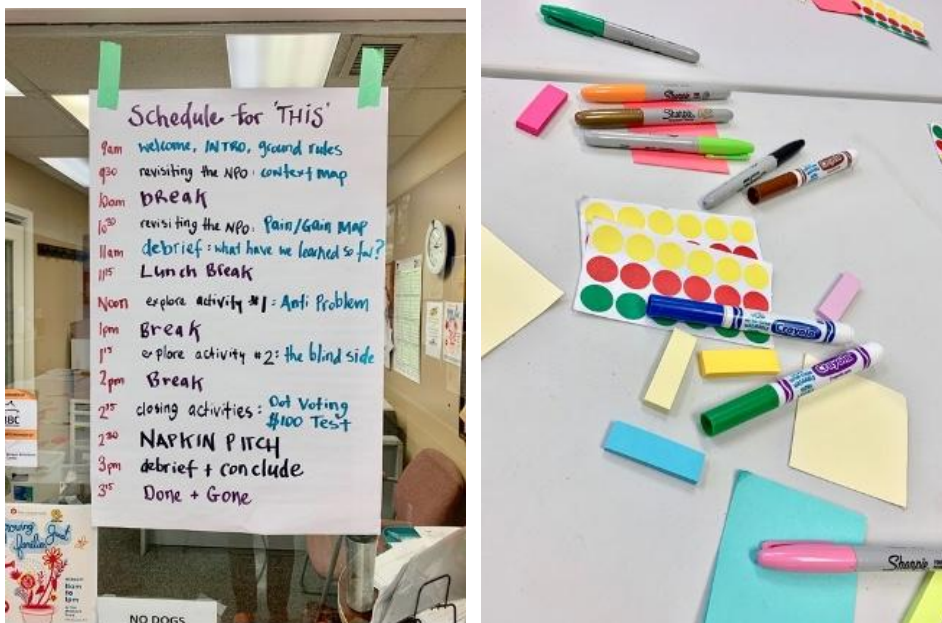 Schedule for 'THIS'
9am welcome, INTRO, ground rules
930 revisiting the NPO: context map
10am break
1030 revisiting the NPO: Pain/Gain Map
11am debrief: what have we learned so far?
1115 Lunch Break
Noon explore activity #1: Anti Problem
1pm Break
115 explore activity #2: the blind side
2pm Break
215 closing activities: Dot Voting
$100 Test
230 NAPKIN PITCH
3pm debrief + conclude
315 Done + Gone
families
11am to
1pm
NO DOGS
Sharpie
Sharpie
Crayola
Crayola
Crayola
Sharpie